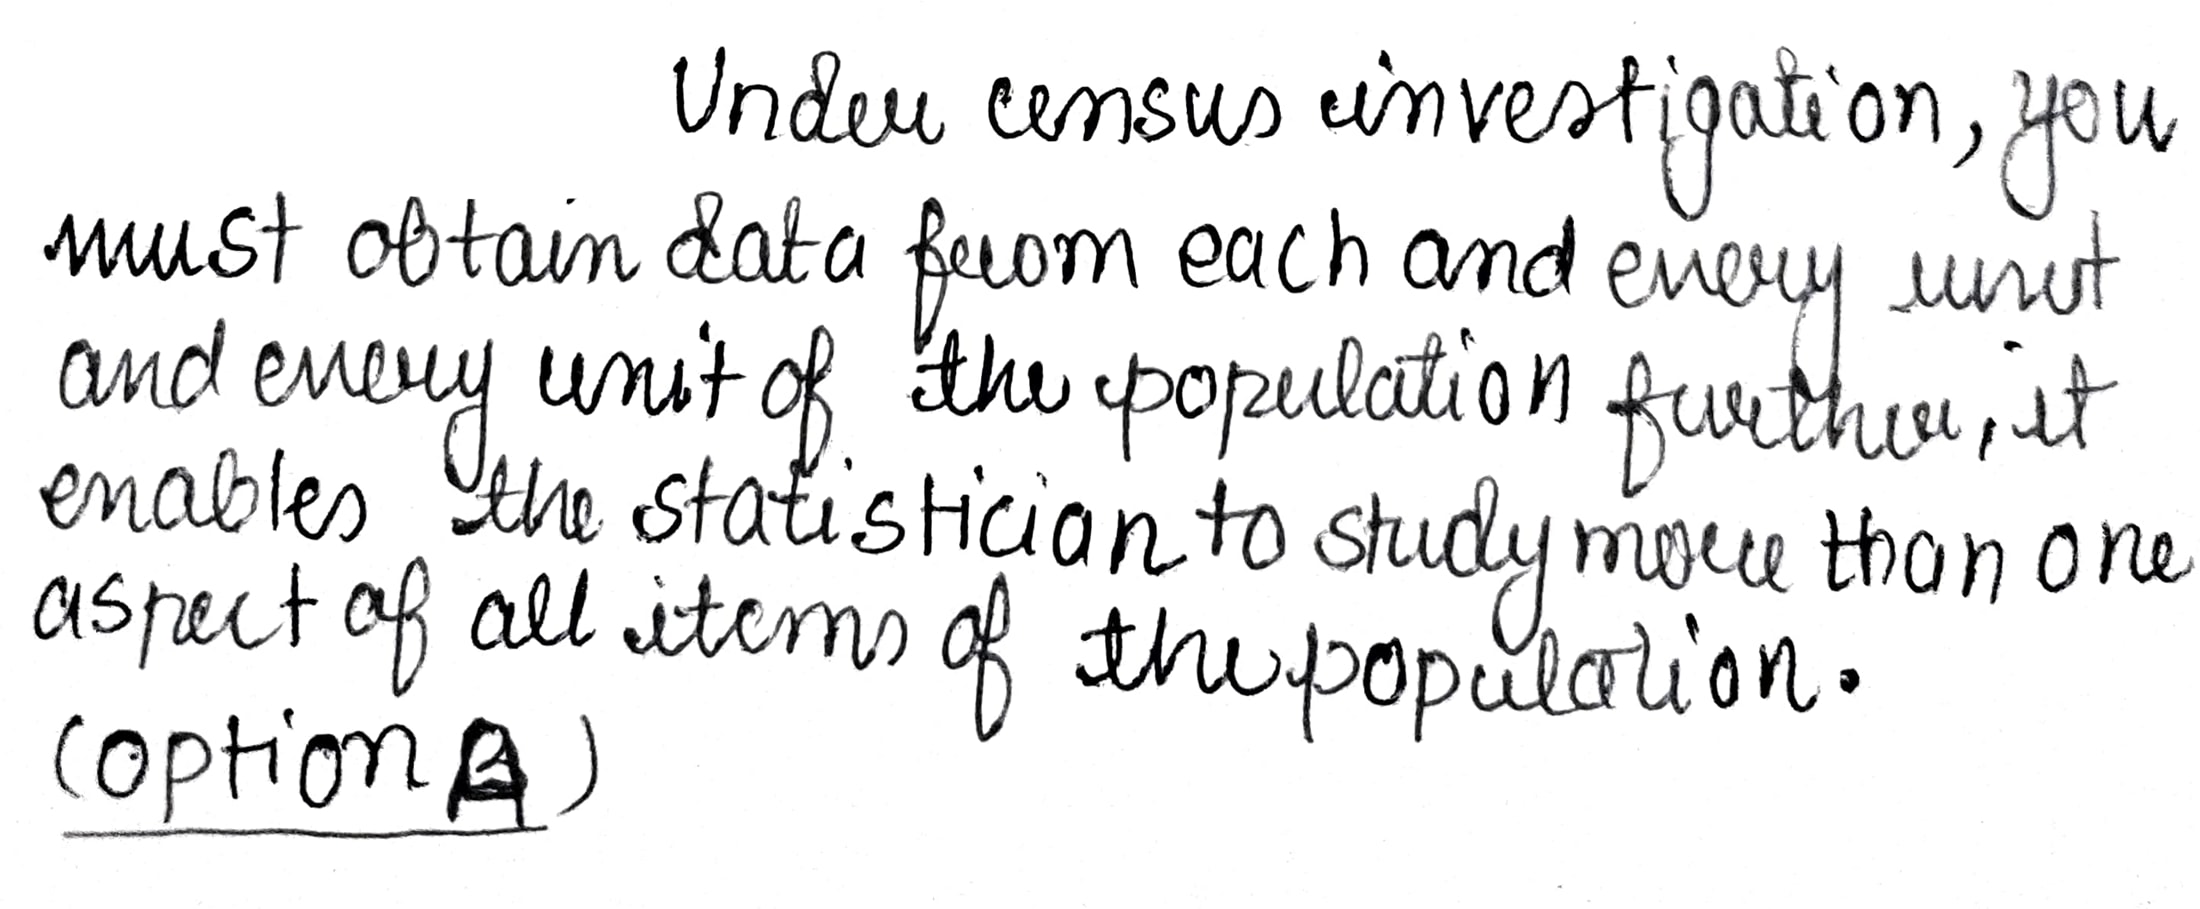 Under census investigation, you
must obtain data from each and every unit
and every unit of the population further, it
enables the statistician to study more than one
aspect of all items of the population.
(option A)